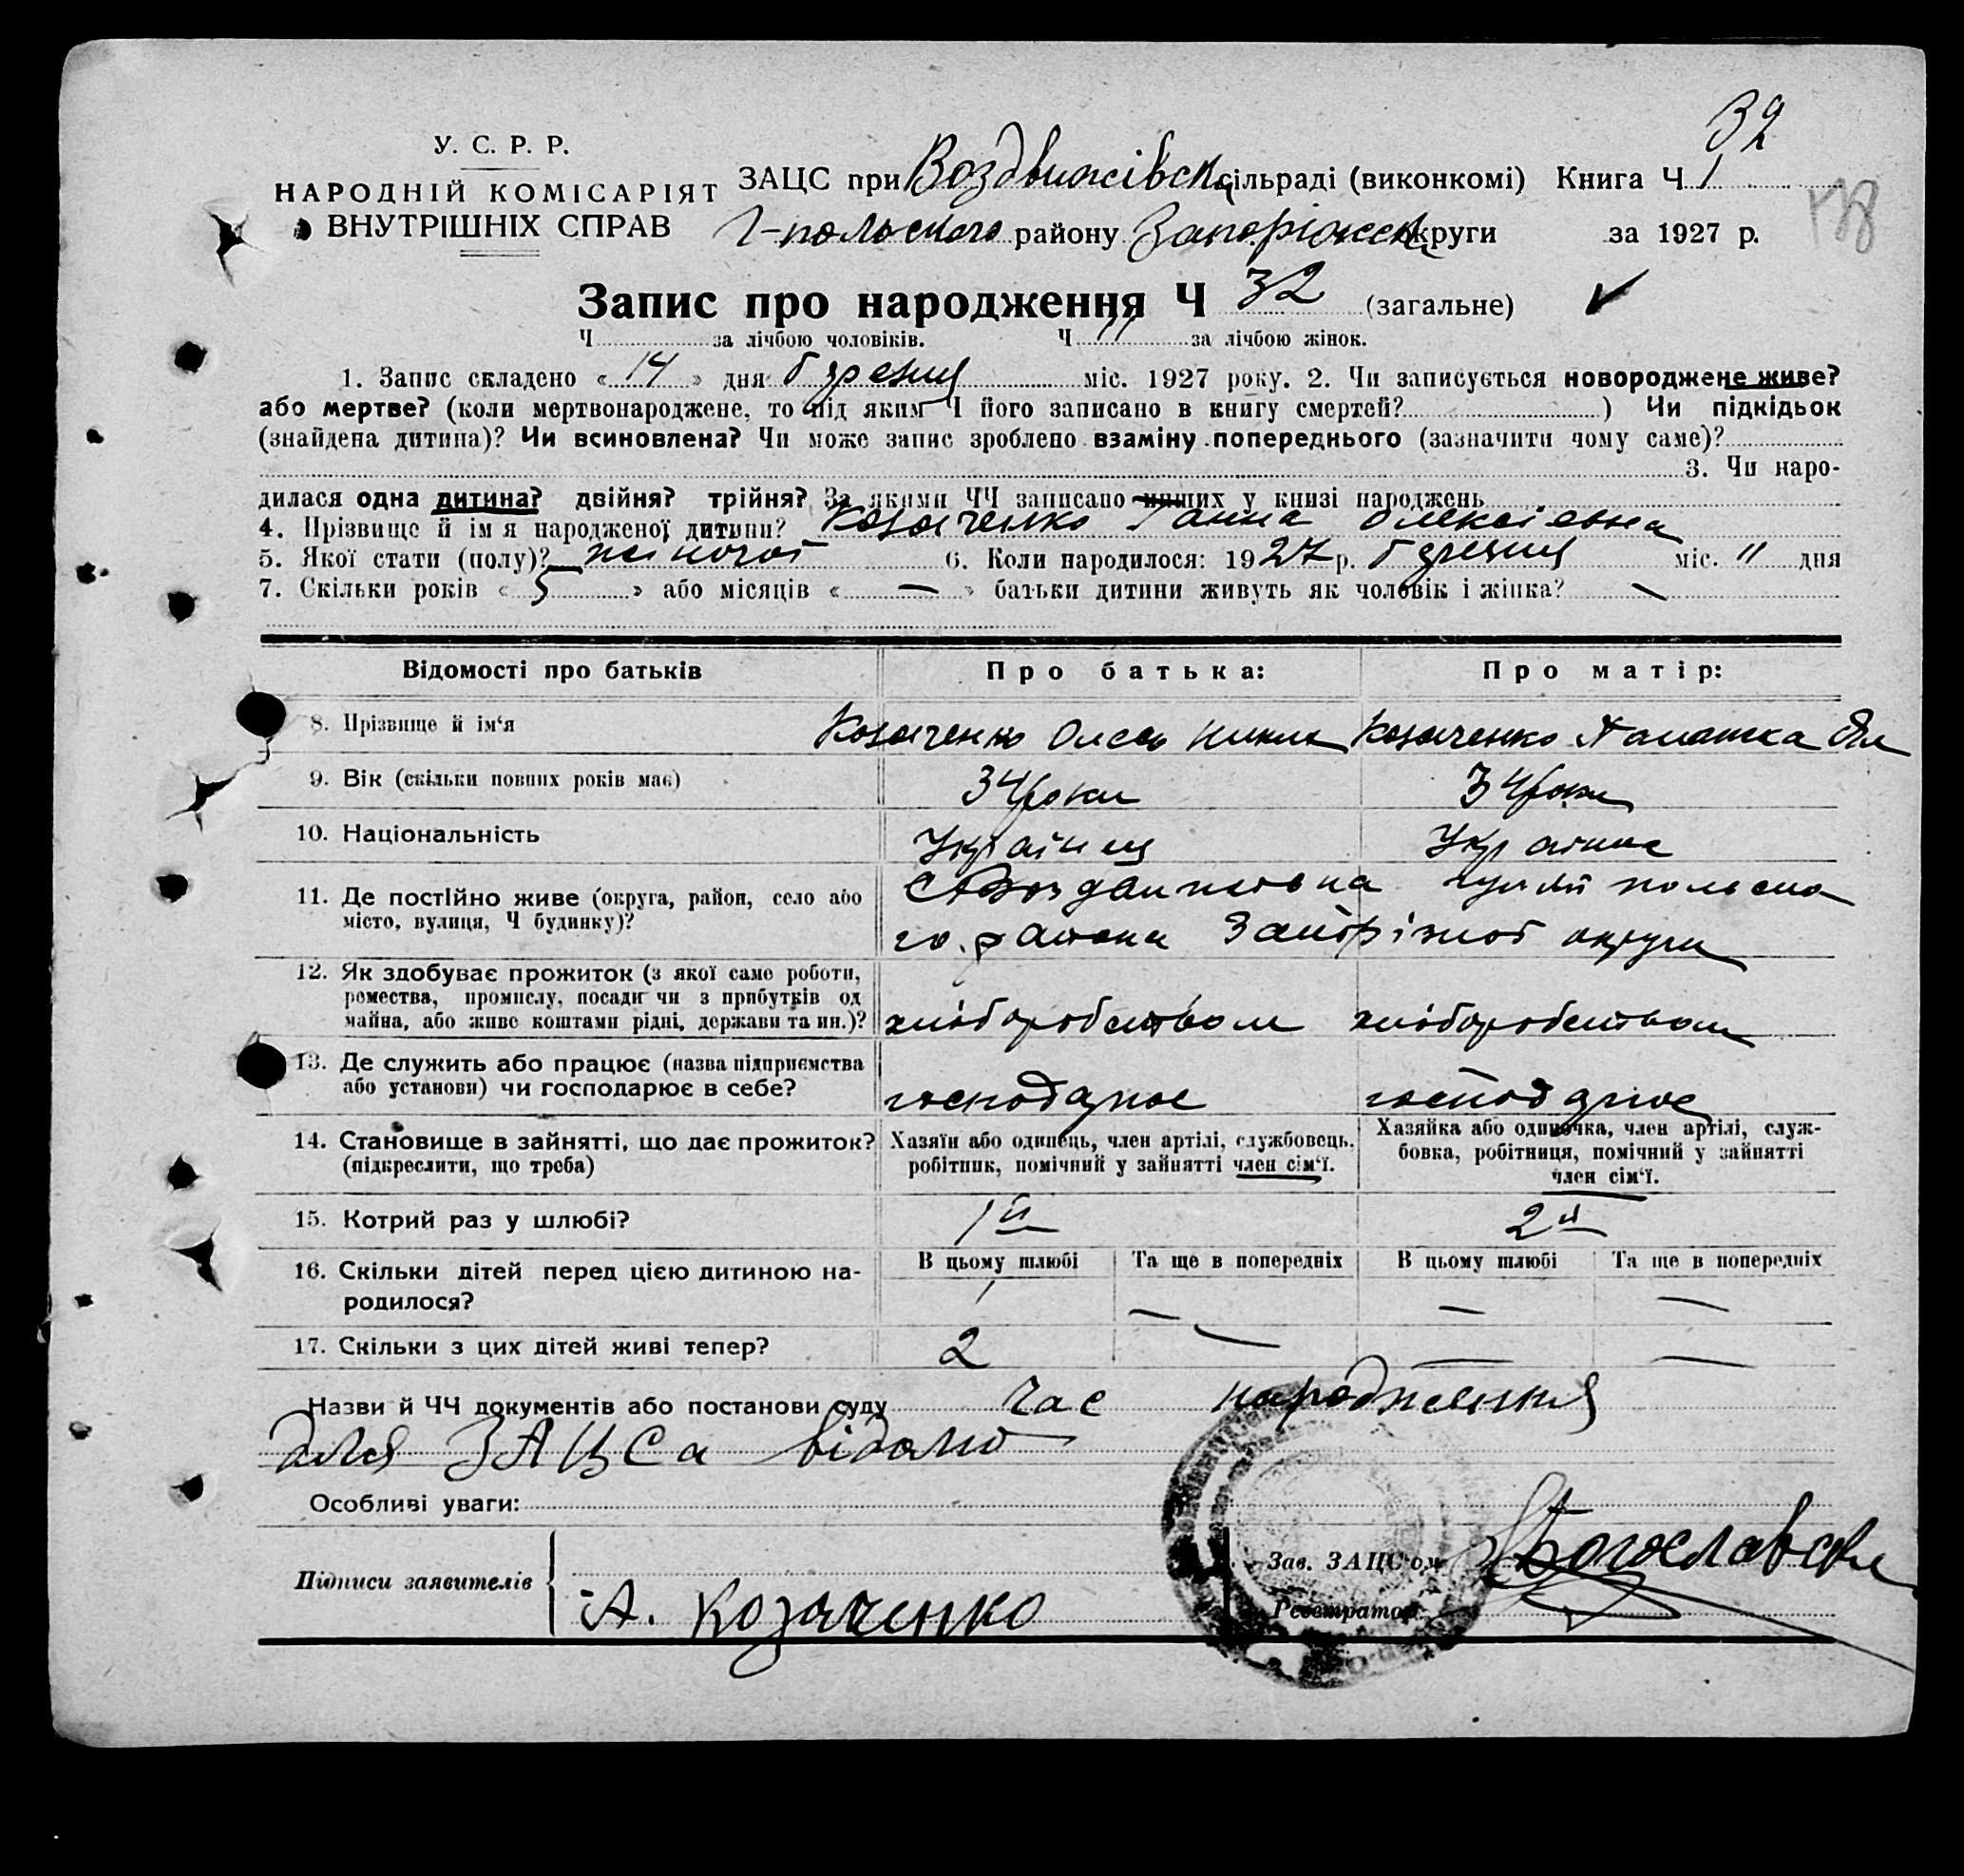 32
У. С. Р. Р.
НАРОДНІЙ КОМІСАРІЯТ
ВНУТРІШНІХ СПРАВ
ЗАЦС при Воздвижівськ сільраді (виконкомі) Книга Ч 1
Г-польского району Запоріжськ округи за 1927 р.
178
Запис про народження Ч 32 (загальне)
Ч за лічбою чоловіків. Ч 11 за лічбою жінок.
1. Запис складено «14» дня березня міс. 1927 року. 2. Чи записується новороджене живе?
або мертве? (коли мертвонароджене, то під яким Ч його записано в книгу смертей? ) Чи підкідьок
(знайдена дитина)? Чи всиновлена? Чи може запис зроблено взаміну попереднього (зазначити чому саме)?
3. Чи наро-
дилася одна дитина? двійня? трійня? За якими ЧЧ записано инших у книзі народжень
4. Прізвище й ім я народженої дитини? Козаченко Ганна Олексіевна
5. Якої стати (полу)? жіночої 6. Коли народилося: 1927 р. березня міс. 11 дня
7. Скільки років «5» або місяців «—» батьки дитини живуть як чоловік і жінка? —
Відомості про батьків Про батька: Про матір:
8. Прізвище й ім‘я Козаченко Олесь Козаченко
9. Вік (скільки повних років має) 34 роки 34 роки
10. Національність Українец Україпка
11. Де постійно живе (округа, район, село або
місто, вулиця, Ч будинку)?
С Воздвижівка гуляй польско
го района Запорізкоі округи
12. Як здобуває прожиток (з якої саме роботи,
ремества, промислу, посади чи з прибутків од
майна, або живе коштами рідні, держави та ин.)?
хліборобством хліборобством
13. Де служить або працює (назва підприємства
або установи) чи господарює в себе?
господарює господарює
14. Становище в зайнятті, що дає прожиток?
(підкреслити, що треба)
Хазяїн або одинець, член артілі, службовець.
робітник, помічний у зайнятті член сім‘ї.
Хазяйка або одиночка, член артілі, служ-
бовка, робітниця, помічний у зайнятті
член сім‘ї.
15. Котрий раз у шлюбі? 1й 2й
16. Скільки дітей перед цією дитиною на-
родилося?
В цьому шлюбі Та ще в попередніх В цьому шлюбі Та ще в попередніх
1 — — —
17. Скільки з цих дітей живі тепер? 2 — — —
Назви й ЧЧ документів або постанови суду час народження
для ЗАЦСа відомо
Особливі уваги:
Підписи заявителів
А. Козаченко
Зав. ЗАЦС‘ом
Реєстратор